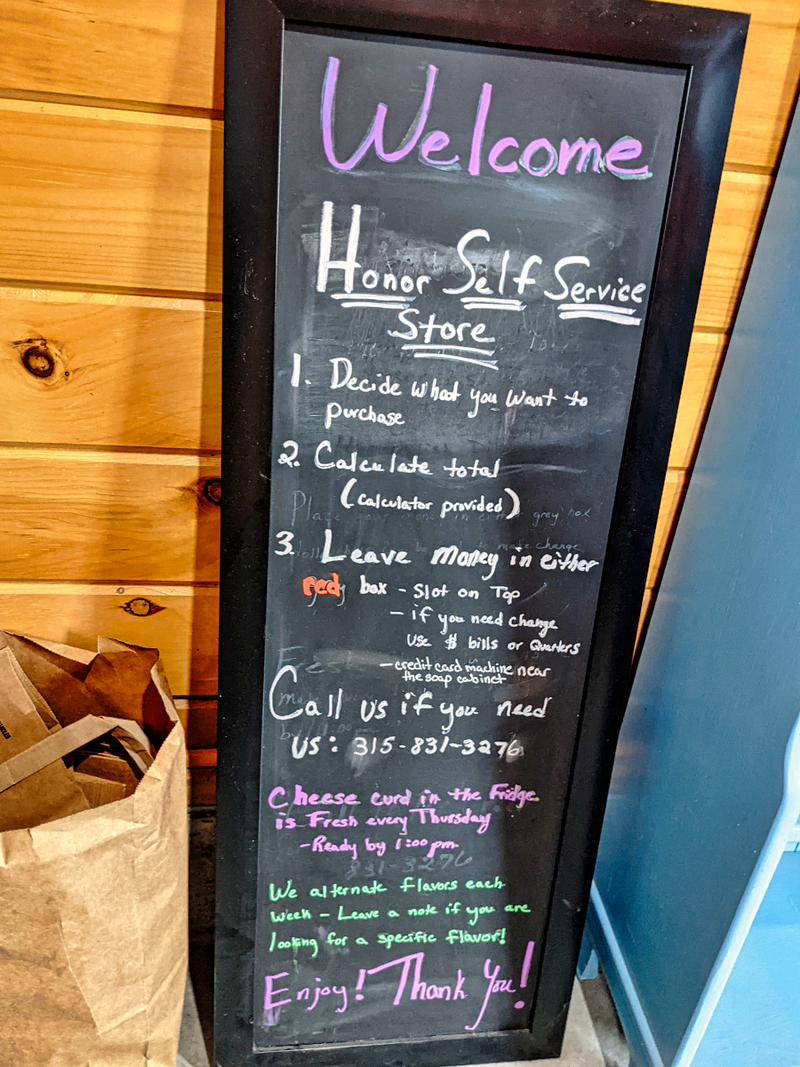 Welcome
Honor Self Service
Store
1. Decide what you want to
purchase
2. Calculate total
(calculator provided)
3. Leave money in either
red box - Slot on Top
- if you need change
use $ bills or Quarters
- credit card machine near
the soap cabinet
Call us if you need
us: 315-831-3276
Cheese curd in the Fridge
is Fresh every Thursday
- Ready by 1:00 pm
831-3276
We alternate flavors each
week - Leave a note if you are
looking for a specific flavor!
Enjoy! Thank You!